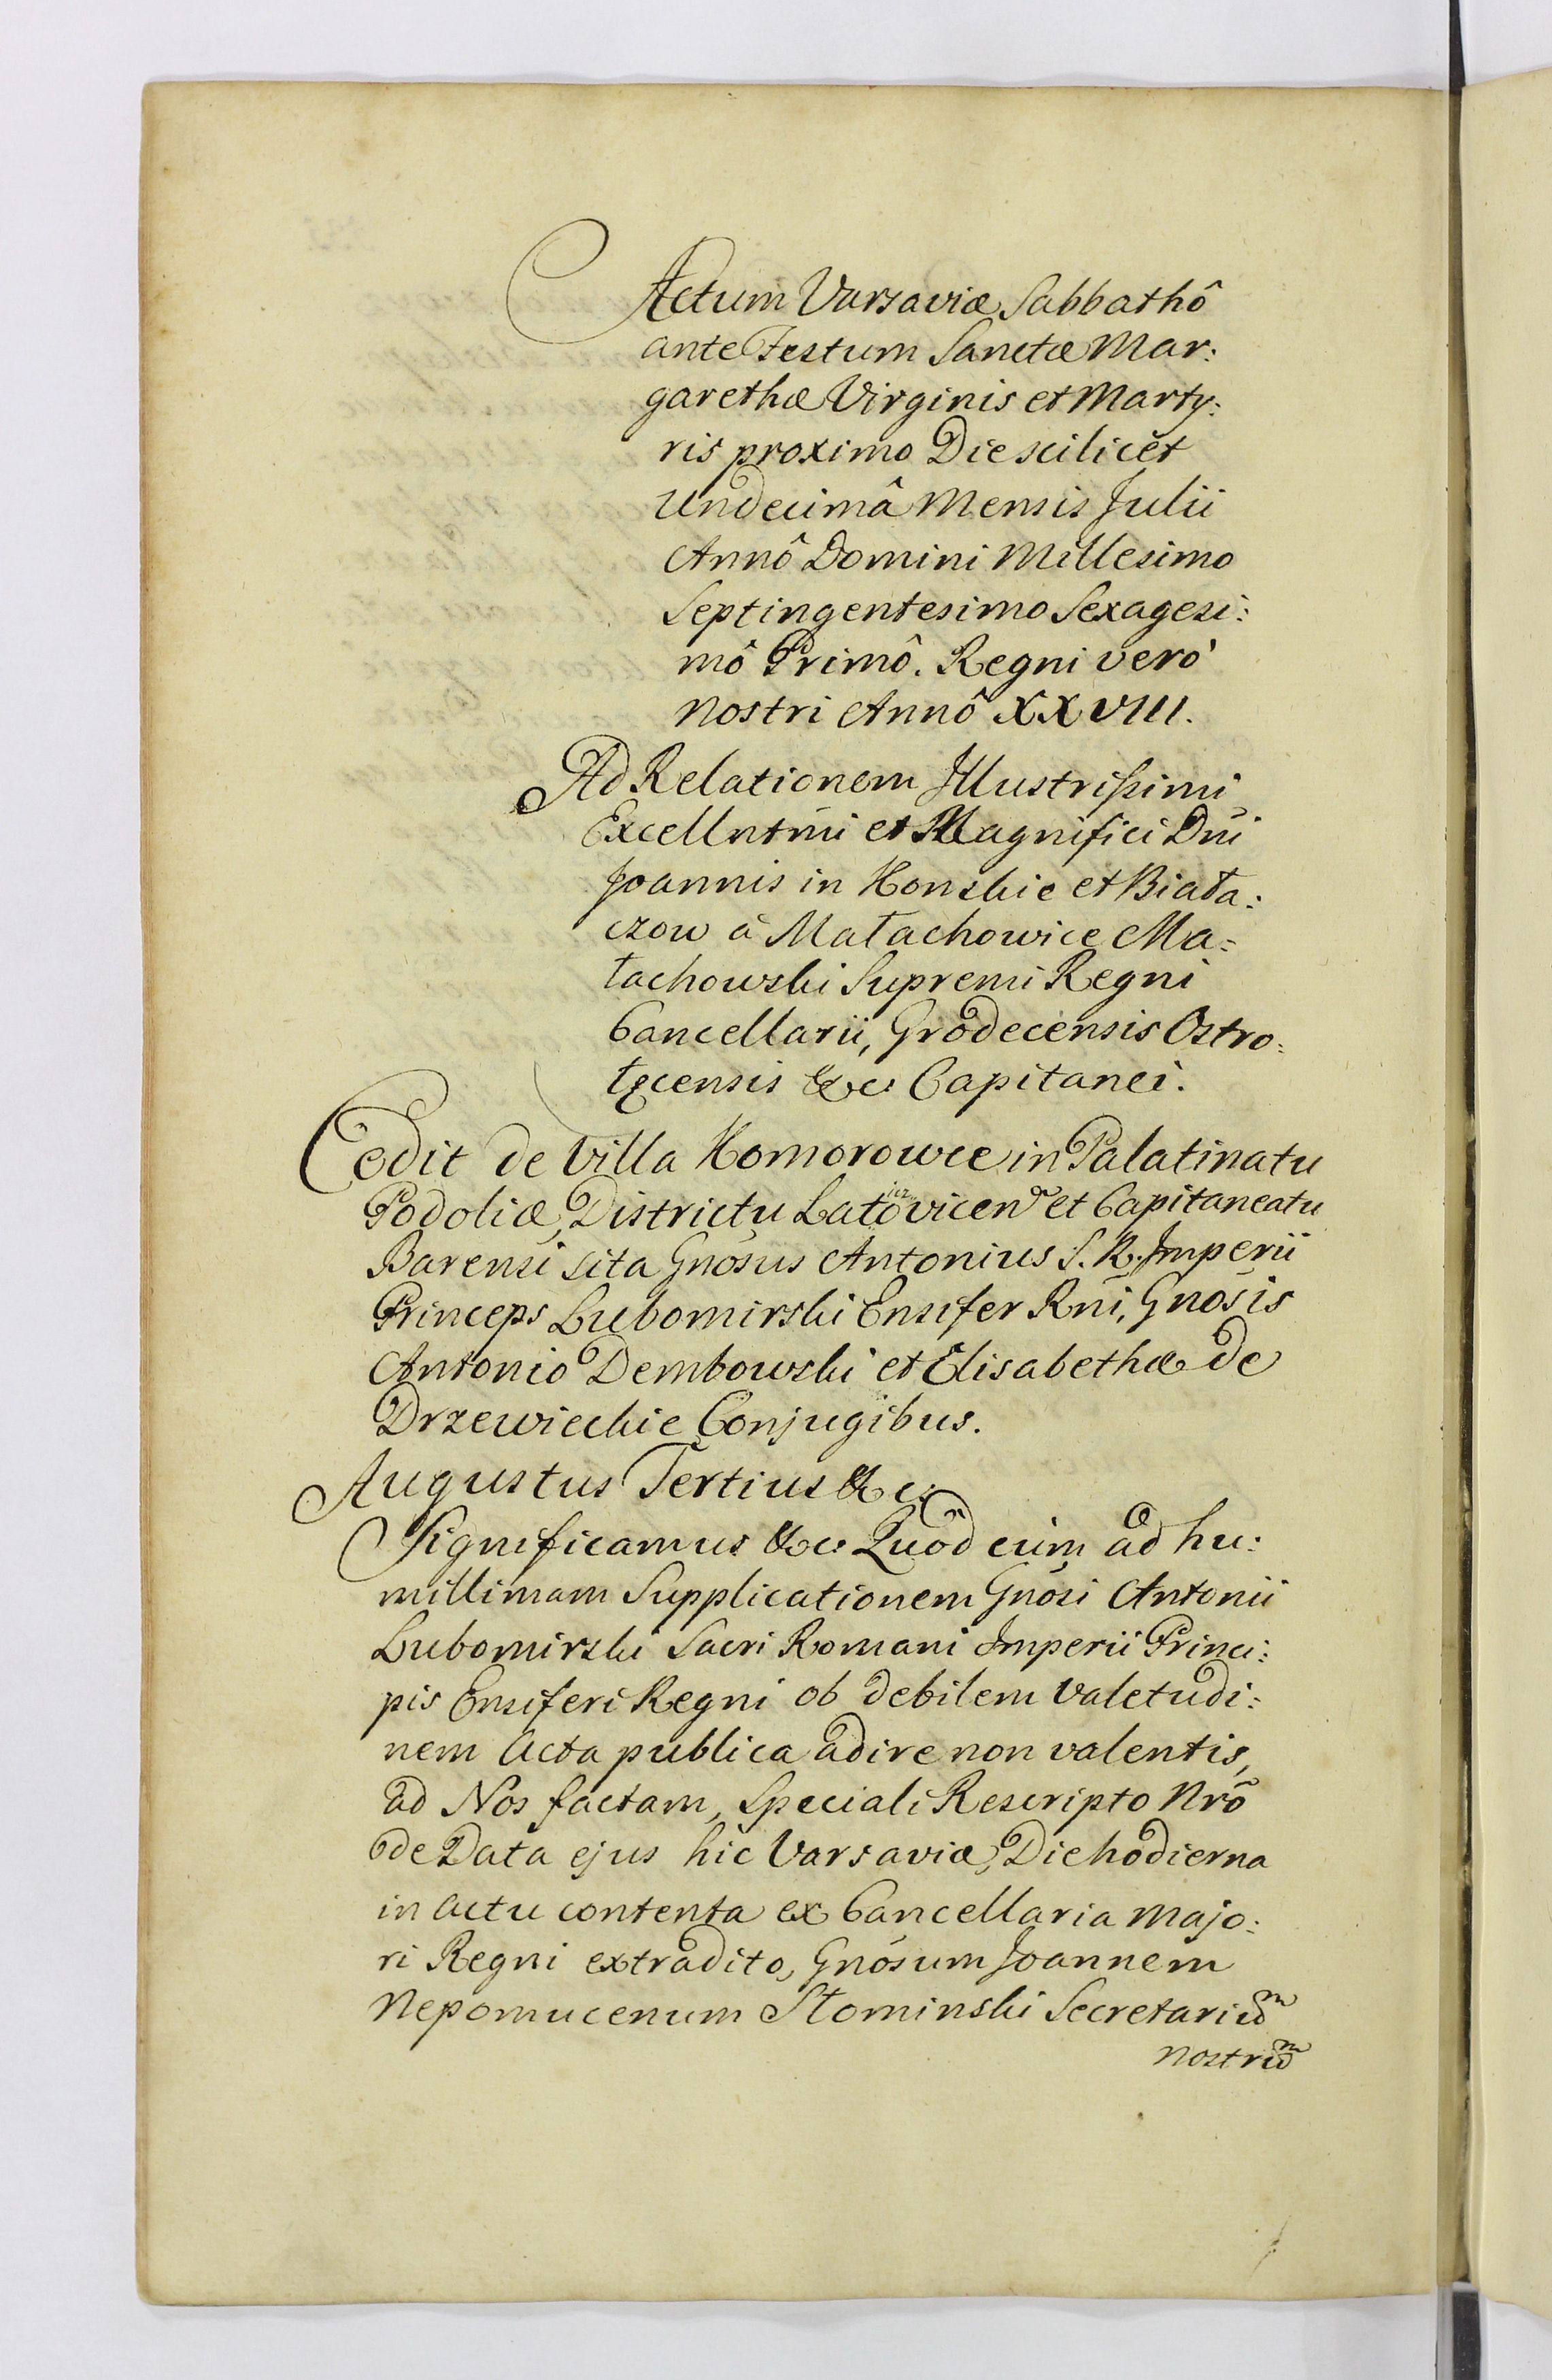 Actum Varsaviæ Sabbathô
ante Festum Sanctæ Mar:
garethæ Virginis et Marty:
ris proximo Die scilicèt
Undecimâ Mensis Julii
Annô Domini Millesimo
Septingentesimo Sexagesi:
mô Primô. Regni verò
nostri Annô XXVIII.
Ad Relationem Jllustrissimi
Excellntmi et Magnifici Dni
Joannis in Konskie et Biała:
czow à Małachowice Ma:
łachowski Supremi Regni
Cancellarii, Grodecensis Ostro:
łęcensis &c. Capitanei.
Cedit de Villa Komorowce in Palatinatu
Podoliæ, Districtu Latovicen et Capitaneatu
Barensi sita Gnosus Antonius S. R. Jmperii
Princeps Lubomirski Ensifer Rni, Gnosis
Antonio Dembowski et Elisabethæ de
Drzewieckie Conjugibus.
Augustus Tertius &c.
Significamus &c. Quod cùm ad hu:
millimam Supplicationem Gnosi Antonii
Lubomirski Sacri Romani Jmperii Princi:
pis Ensiferi Regni ob debilem valetudi:
nem Acta publica adire non valentis,
ad Nos factam, Speciali Rescripto Nrõ
de Data ejus hic Varsaviæ, Die hodierna
in actu contenta ex Cancellaria Majo:
ri Regni extradito, Gnosum Joannem
Nepomucenum Słominski Secretariũm
nostrũm